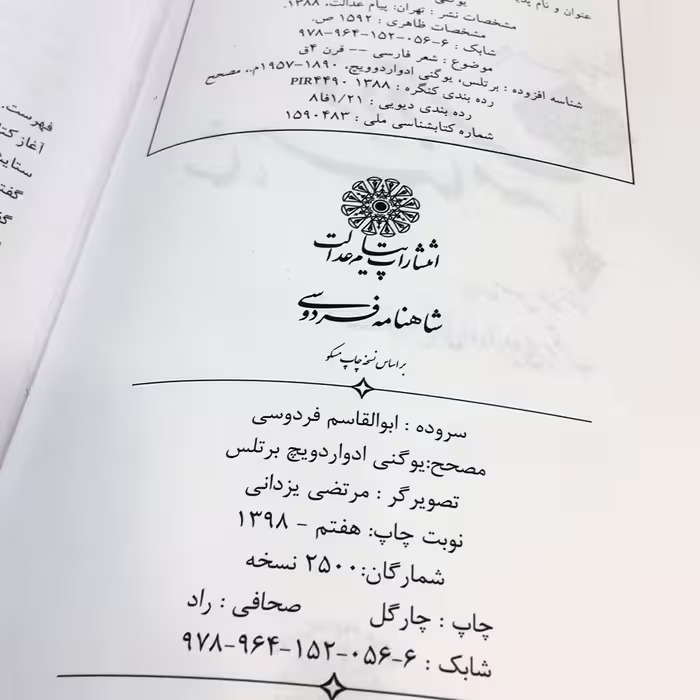 عنوان و نام
مشخصات نشر : تهران: پیام عدالت، ۱۳۸۸.
مشخصات ظاهری : ۱۵۹۲ ص.
شابک : ۶-۰۵۶-۱۵۲-۹۶۴-۹۷۸
موضوع : شعر فارسی -- قرن ۴ق
شناسه افزوده : برتلس، یوگنی ادواردوویچ، ۱۸۹۰-۱۹۵۷م.، مصحح
رده بندی کنگره : ۱۳۸۸ PIR۴۴۹۰
رده بندی دیویی : ۱/۲۱فا۸
شماره کتابشناسی ملی : ۱۵۹۰۴۸۳
انتشارات پیام عدالت
شاهنامه فردوسی
بر اساس نسخه چاپ مسکو
سروده : ابوالقاسم فردوسی
مصحح:یوگنی ادواردویچ برتلس
تصویرگر : مرتضی یزدانی
نوبت چاپ: هفتم - ۱۳۹۸
شمارگان:۲۵۰۰ نسخه
چاپ : چارگل صحافی : راد
شابک : ۶-۰۵۶-۱۵۲-۹۶۴-۹۷۸
فهرست
آغاز